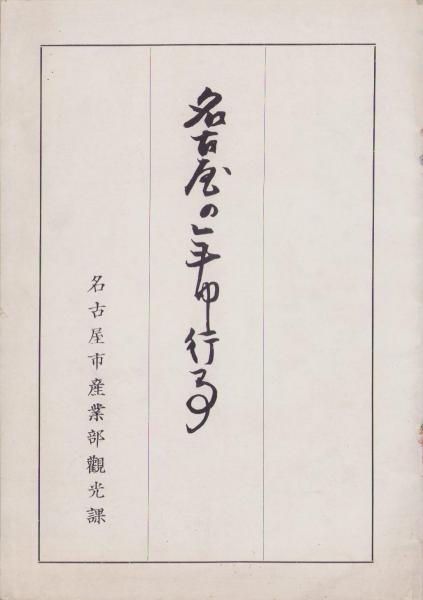 名古屋の年中行事
名古屋市産業部觀光課